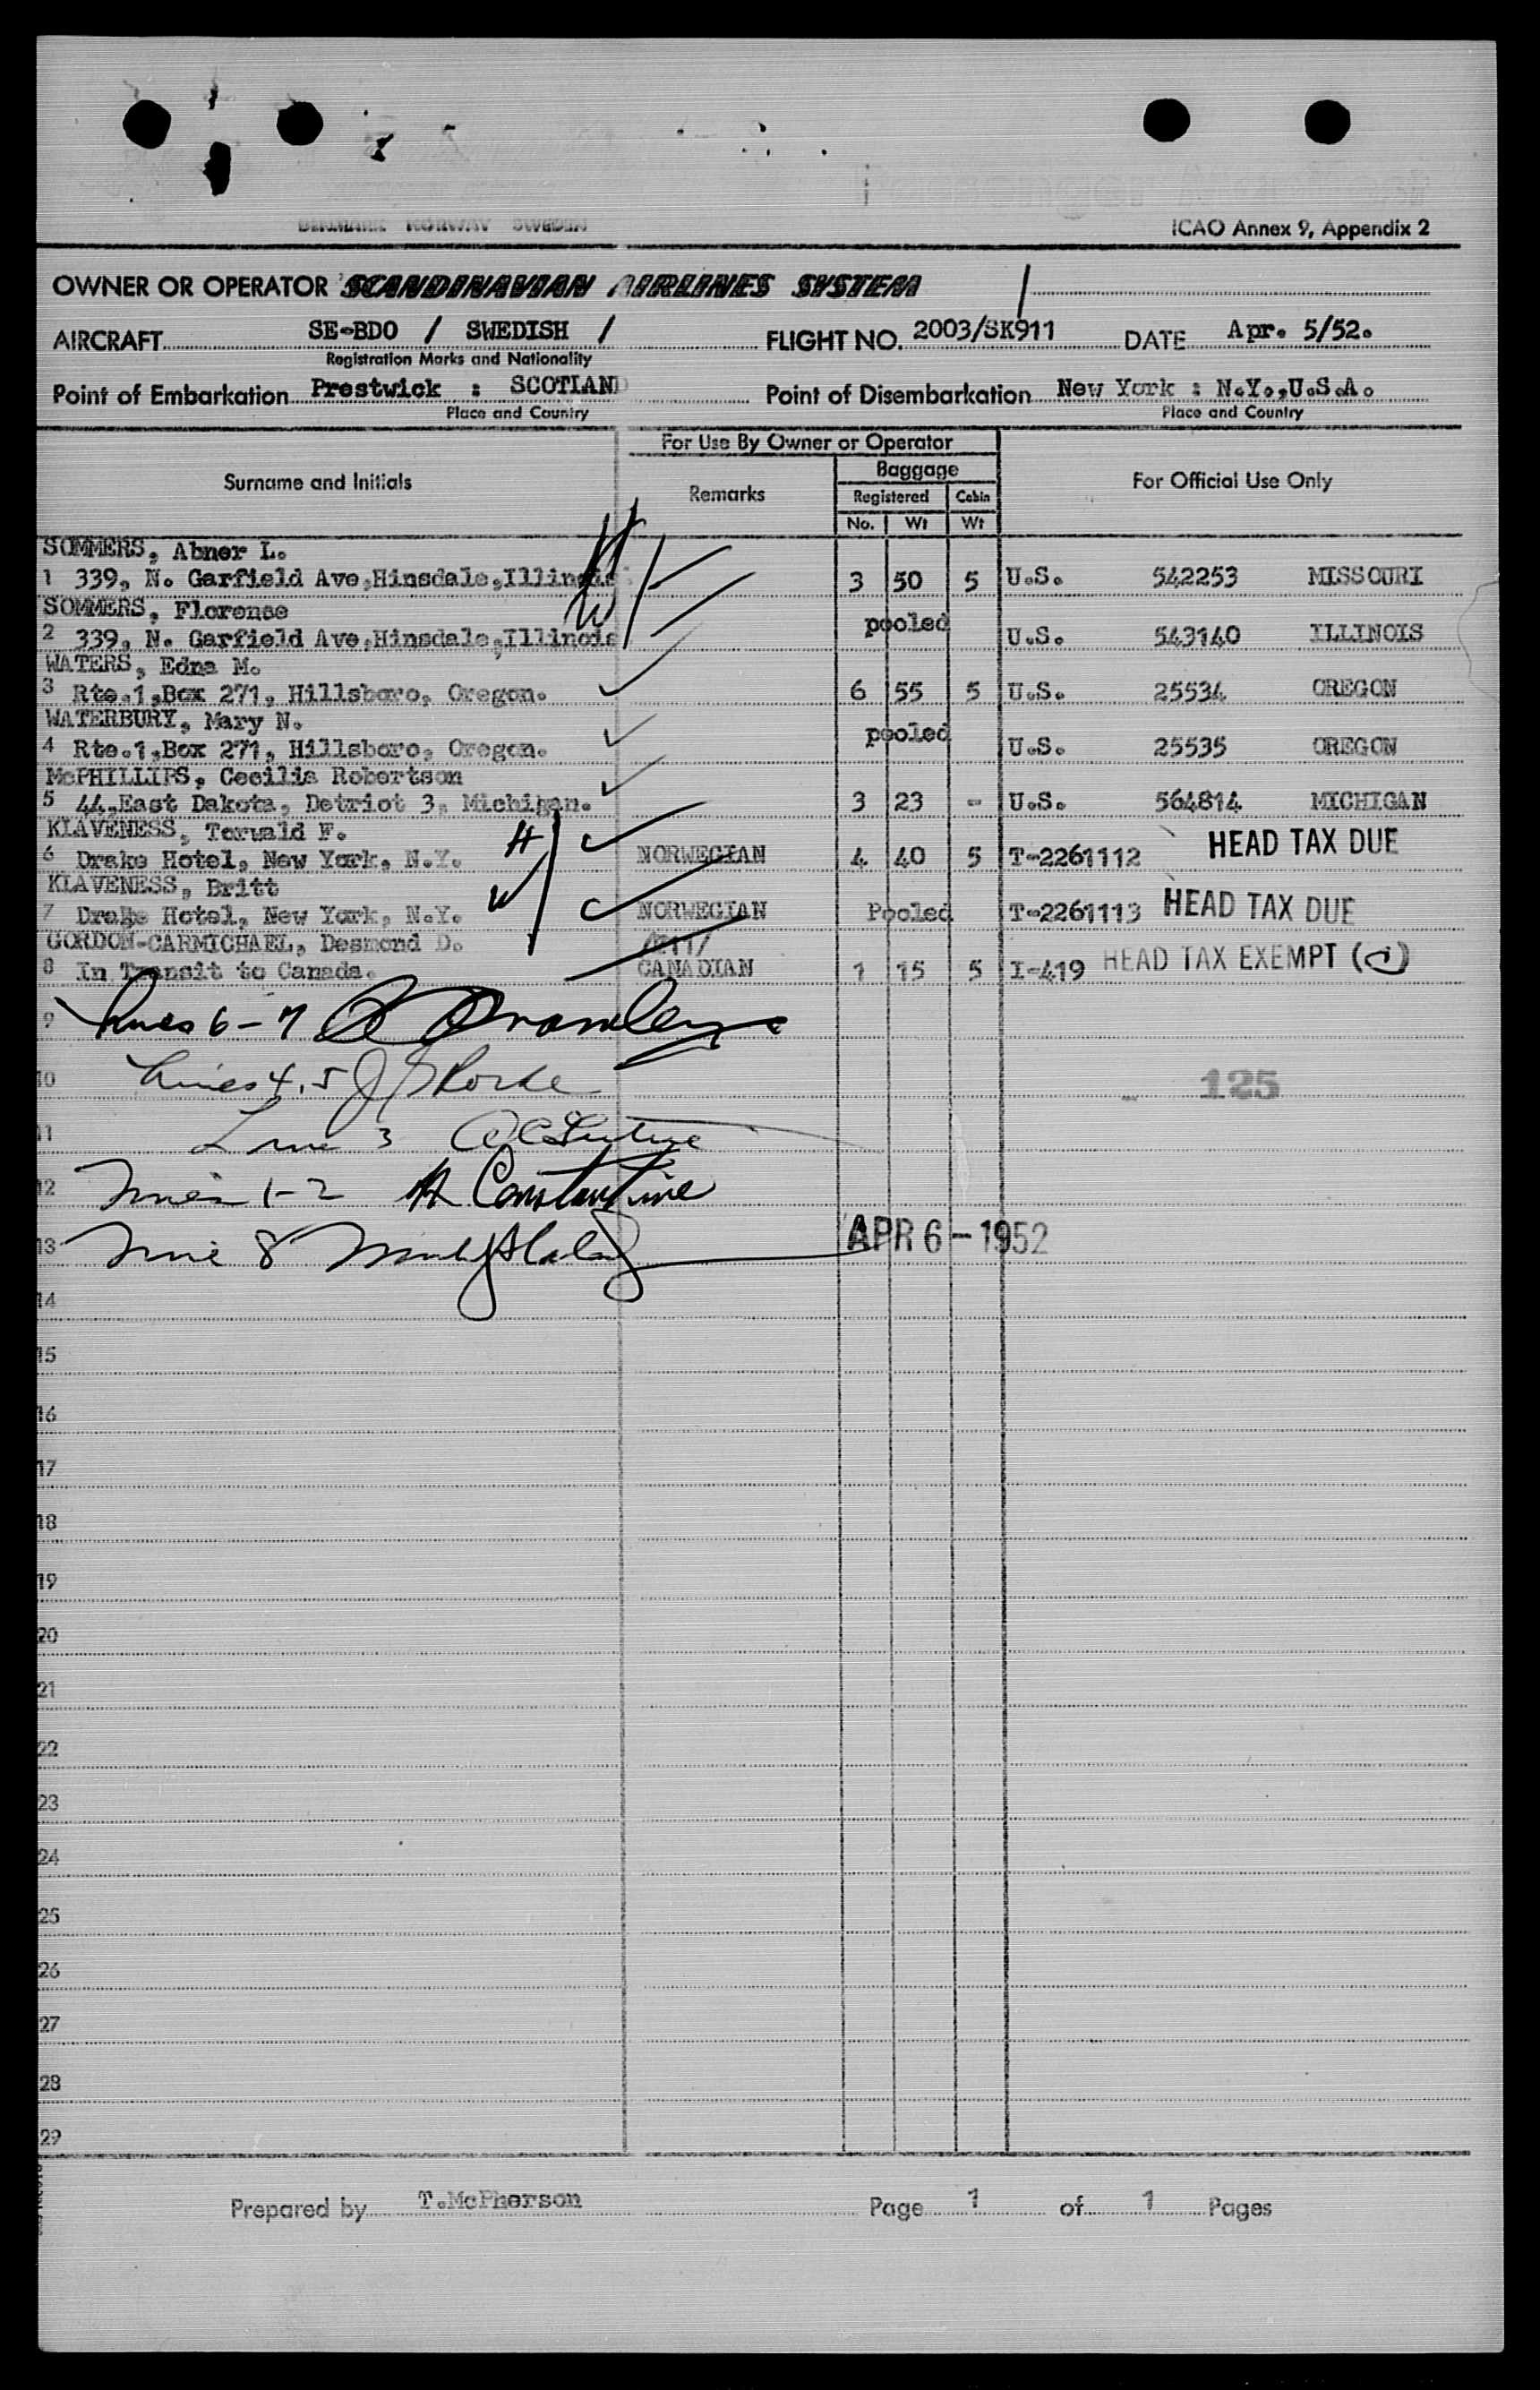 DENMARK NORWAY SWEDEN
ICAO Annex 9, Appendix 2
OWNER OR OPERATOR SCANDINAVIAN AIRLINES SYSTEM
AIRCRAFT SE-BDO / SWEDISH / FLIGHT NO. 2003/SK911 DATE Apr. 5/52.
Registration Marks and Nationality
Point of Embarkation Prestwick : SCOTLAND Point of Disembarkation New York : N.Y.,U.S.A.
Place and Country Place and Country
For Use By Owner or Operator
Surname and Initials Remarks Baggage For Official Use Only
Registered Cabin
No. Wt Wt
SOMMERS, Abner L.
1 339, N. Garfield Ave,Hinsdale,Illinois 3 50 5 U.S. 542253 MISSOURI
SOMMERS, Florence
2 339, N. Garfield Ave,Hinsdale,Illinois pooled U.S. 543140 ILLINOIS
WATERS, Edna M.
3 Rte.1,Box 271, Hillsboro, Oregon. 6 55 5 U.S. 25534 OREGON
WATERBURY, Mary N.
4 Rte.1,Box 271, Hillsboro, Oregon. pooled U.S. 25535 OREGON
McPHILLIPS, Cecilia Robertson
5 44,East Dakota, Detriot 3, Michigan. 3 23 - U.S. 564814 MICHIGAN
KLAVENESS, Torvald F. H
6 Drake Hotel, New York, N.Y. NORWEGIAN 4 40 5 T-2261112 HEAD TAX DUE
KLAVENESS, Britt W
7 Drake Hotel, New York, N.Y. NORWEGIAN Pooled T-2261113 HEAD TAX DUE
GORDON-CARMICHAEL, Desmond D.
8 In Transit to Canada. CANADIAN 1 15 5 I-419 HEAD TAX EXEMPT
9 Lines 6-7
10 Lines 4,5 125
11 Line 3
12 Lines 1-2 Constantine
13 Line 8 APR 6 - 1952
14
15
16
17
18
19
20
21
22
23
24
25
26
27
28
29
Prepared by T.McPherson Page 1 of 1 Pages